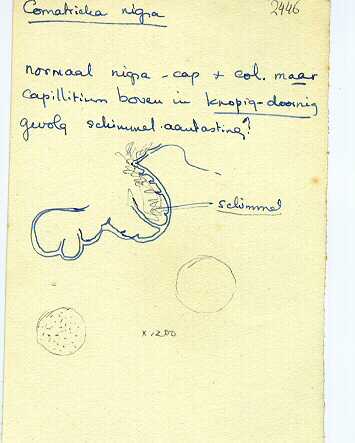 Comatricha nigra
2446
normaal nigra - cap + col. maar
capillitium boven in knopig-doornig
gevolg schimmel aantasting?
schimmel
x 1200